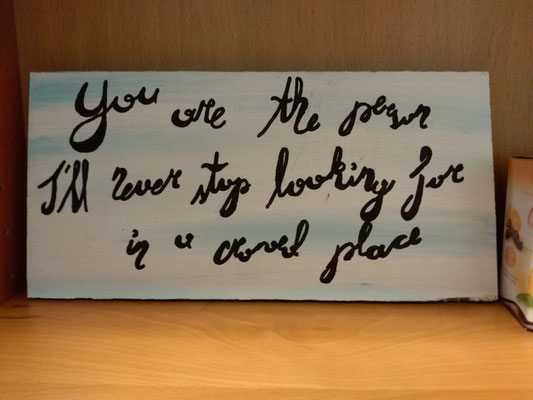 You are the person
I'll never stop looking for
in a crowd place